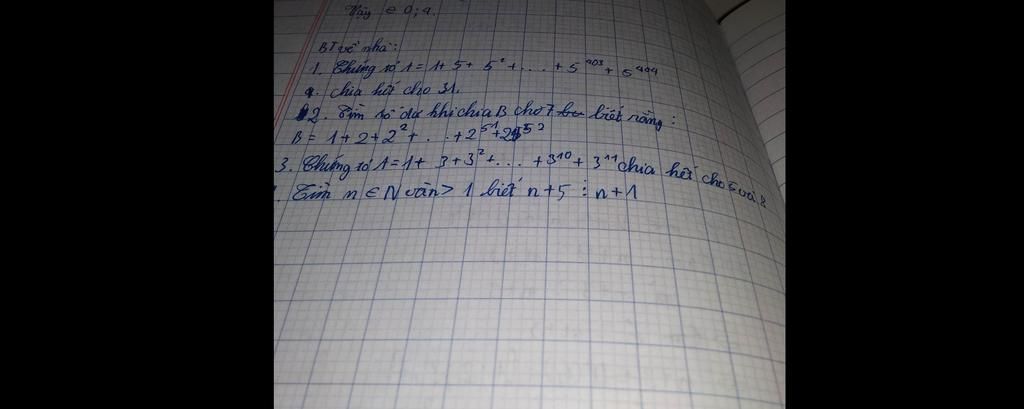 Vậy ∈ 0; 4.
BT về nhà:
1. Chứng tỏ A = 1 + 5 + 5² + . . . + 5⁴⁰³ + 5⁴⁰⁴
chia hết cho 31.
2. Tìm số dư khi chia B cho 7 biết rằng:
B = 1 + 2 + 2² + . . . + 2⁵¹ + 2⁵²
3. Chứng tỏ A = 1 + 3 + 3² + . . . + 3¹⁰ + 3¹¹ chia hết cho 5 và 8
Tìm n ∈ N và n > 1 biết n + 5 ⋮ n + 1